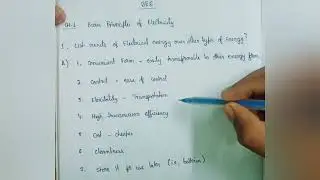 BEE
Unit-1 Basic Principle of Electricity
1. List merits of Electrical energy over other types of Energy?
A) 1. Convenient Form - easily transformable to other energy form
2. Control - ease of control
3. Flexibility - Transportation
4. High Transmission efficiency
5. Cost - cheaper
6. Cleanliness
7. Store it for use later (i.e., batteries)